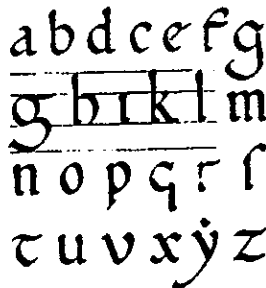 a b d c e f g
g h ı k l m
n o p q r ſ
t u v x ẏ z